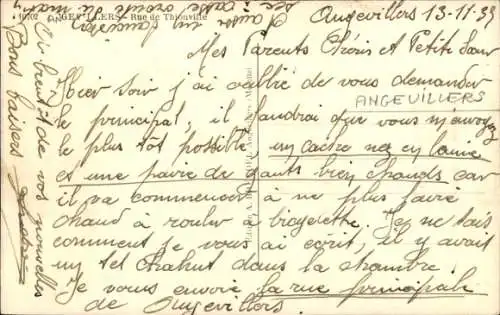 ANGEVILLERS - Rue de Thionville
Angevillers 13-11-37
Mes Parents Chéris et Petite Sœur
Hier soir j'ai oublié de vous demander
ANGEVILLERS
le principal, il faudrai que vous m'envoyez
le plus tôt possible un cache nez en laine
et une paire de gants bien chauds car
il va commencer à ne plus faire
chaud à rouler à bicyclette. Je ne sais
comment je vous ai écrit, il y avait
un tel chahut dans la chambre.
Je vous envoie la rue principale
de Angevillers.
à bientôt de vos nouvelles
Bons baisers